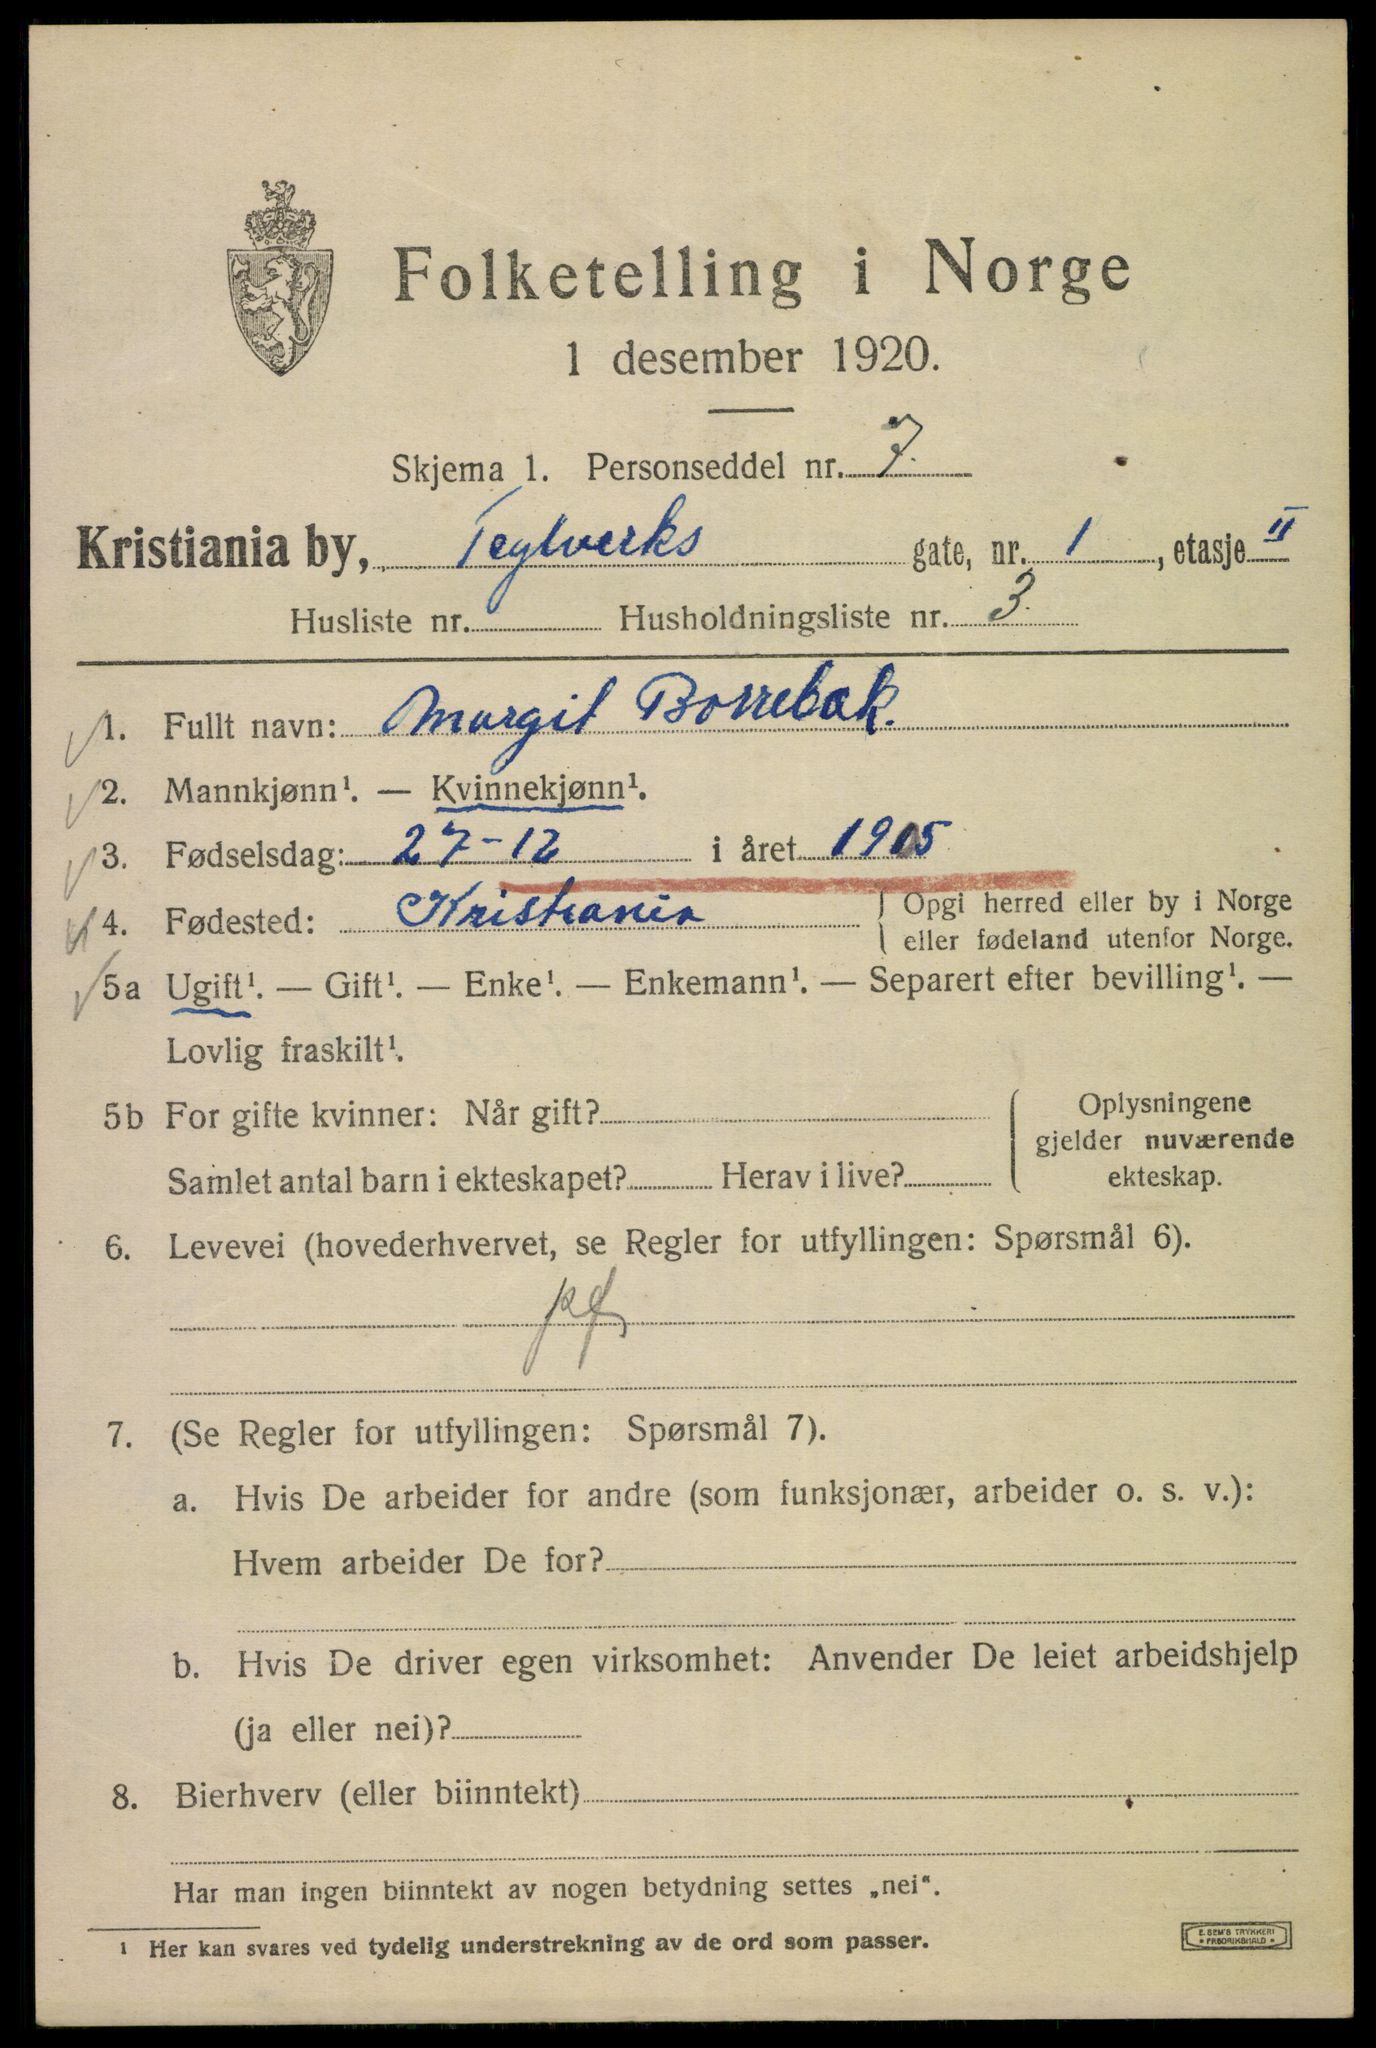 Folketelling i Norge
1 desember 1920.
Skjema 1. Personseddel nr. 7.
Kristiania by, Teglverks gate, nr. 1, etasje II
Husliste nr. Husholdningsliste nr. 3.
1. Fullt navn: Margit Borrebæk.
2. Mannkjønn¹. — Kvinnekjønn¹.
3. Fødselsdag: 27-12 i året 1905
4. Fødested: Kristiania
Opgi herred eller by i Norge
eller fødeland utenfor Norge.
5a Ugift¹. — Gift¹. — Enke¹. — Enkemann¹. — Separert efter bevilling¹. —
Lovlig fraskilt¹.
5b For gifte kvinner: Når gift?
Samlet antal barn i ekteskapet? Herav i live?
Oplysningene
gjelder nuværende
ekteskap.
6. Levevei (hovederhvervet, se Regler for utfyllingen: Spørsmål 6).
7. (Se Regler for utfyllingen: Spørsmål 7).
a. Hvis De arbeider for andre (som funksjonær, arbeider o. s. v.):
Hvem arbeider De for?
b. Hvis De driver egen virksomhet: Anvender De leiet arbeidshjelp
(ja eller nei)?
8. Bierhverv (eller biinntekt)
Har man ingen biinntekt av nogen betydning settes „nei“.
¹ Her kan svares ved tydelig understrekning av de ord som passer.
E. SEM'S TRYKKERI
FREDRIKSHALD